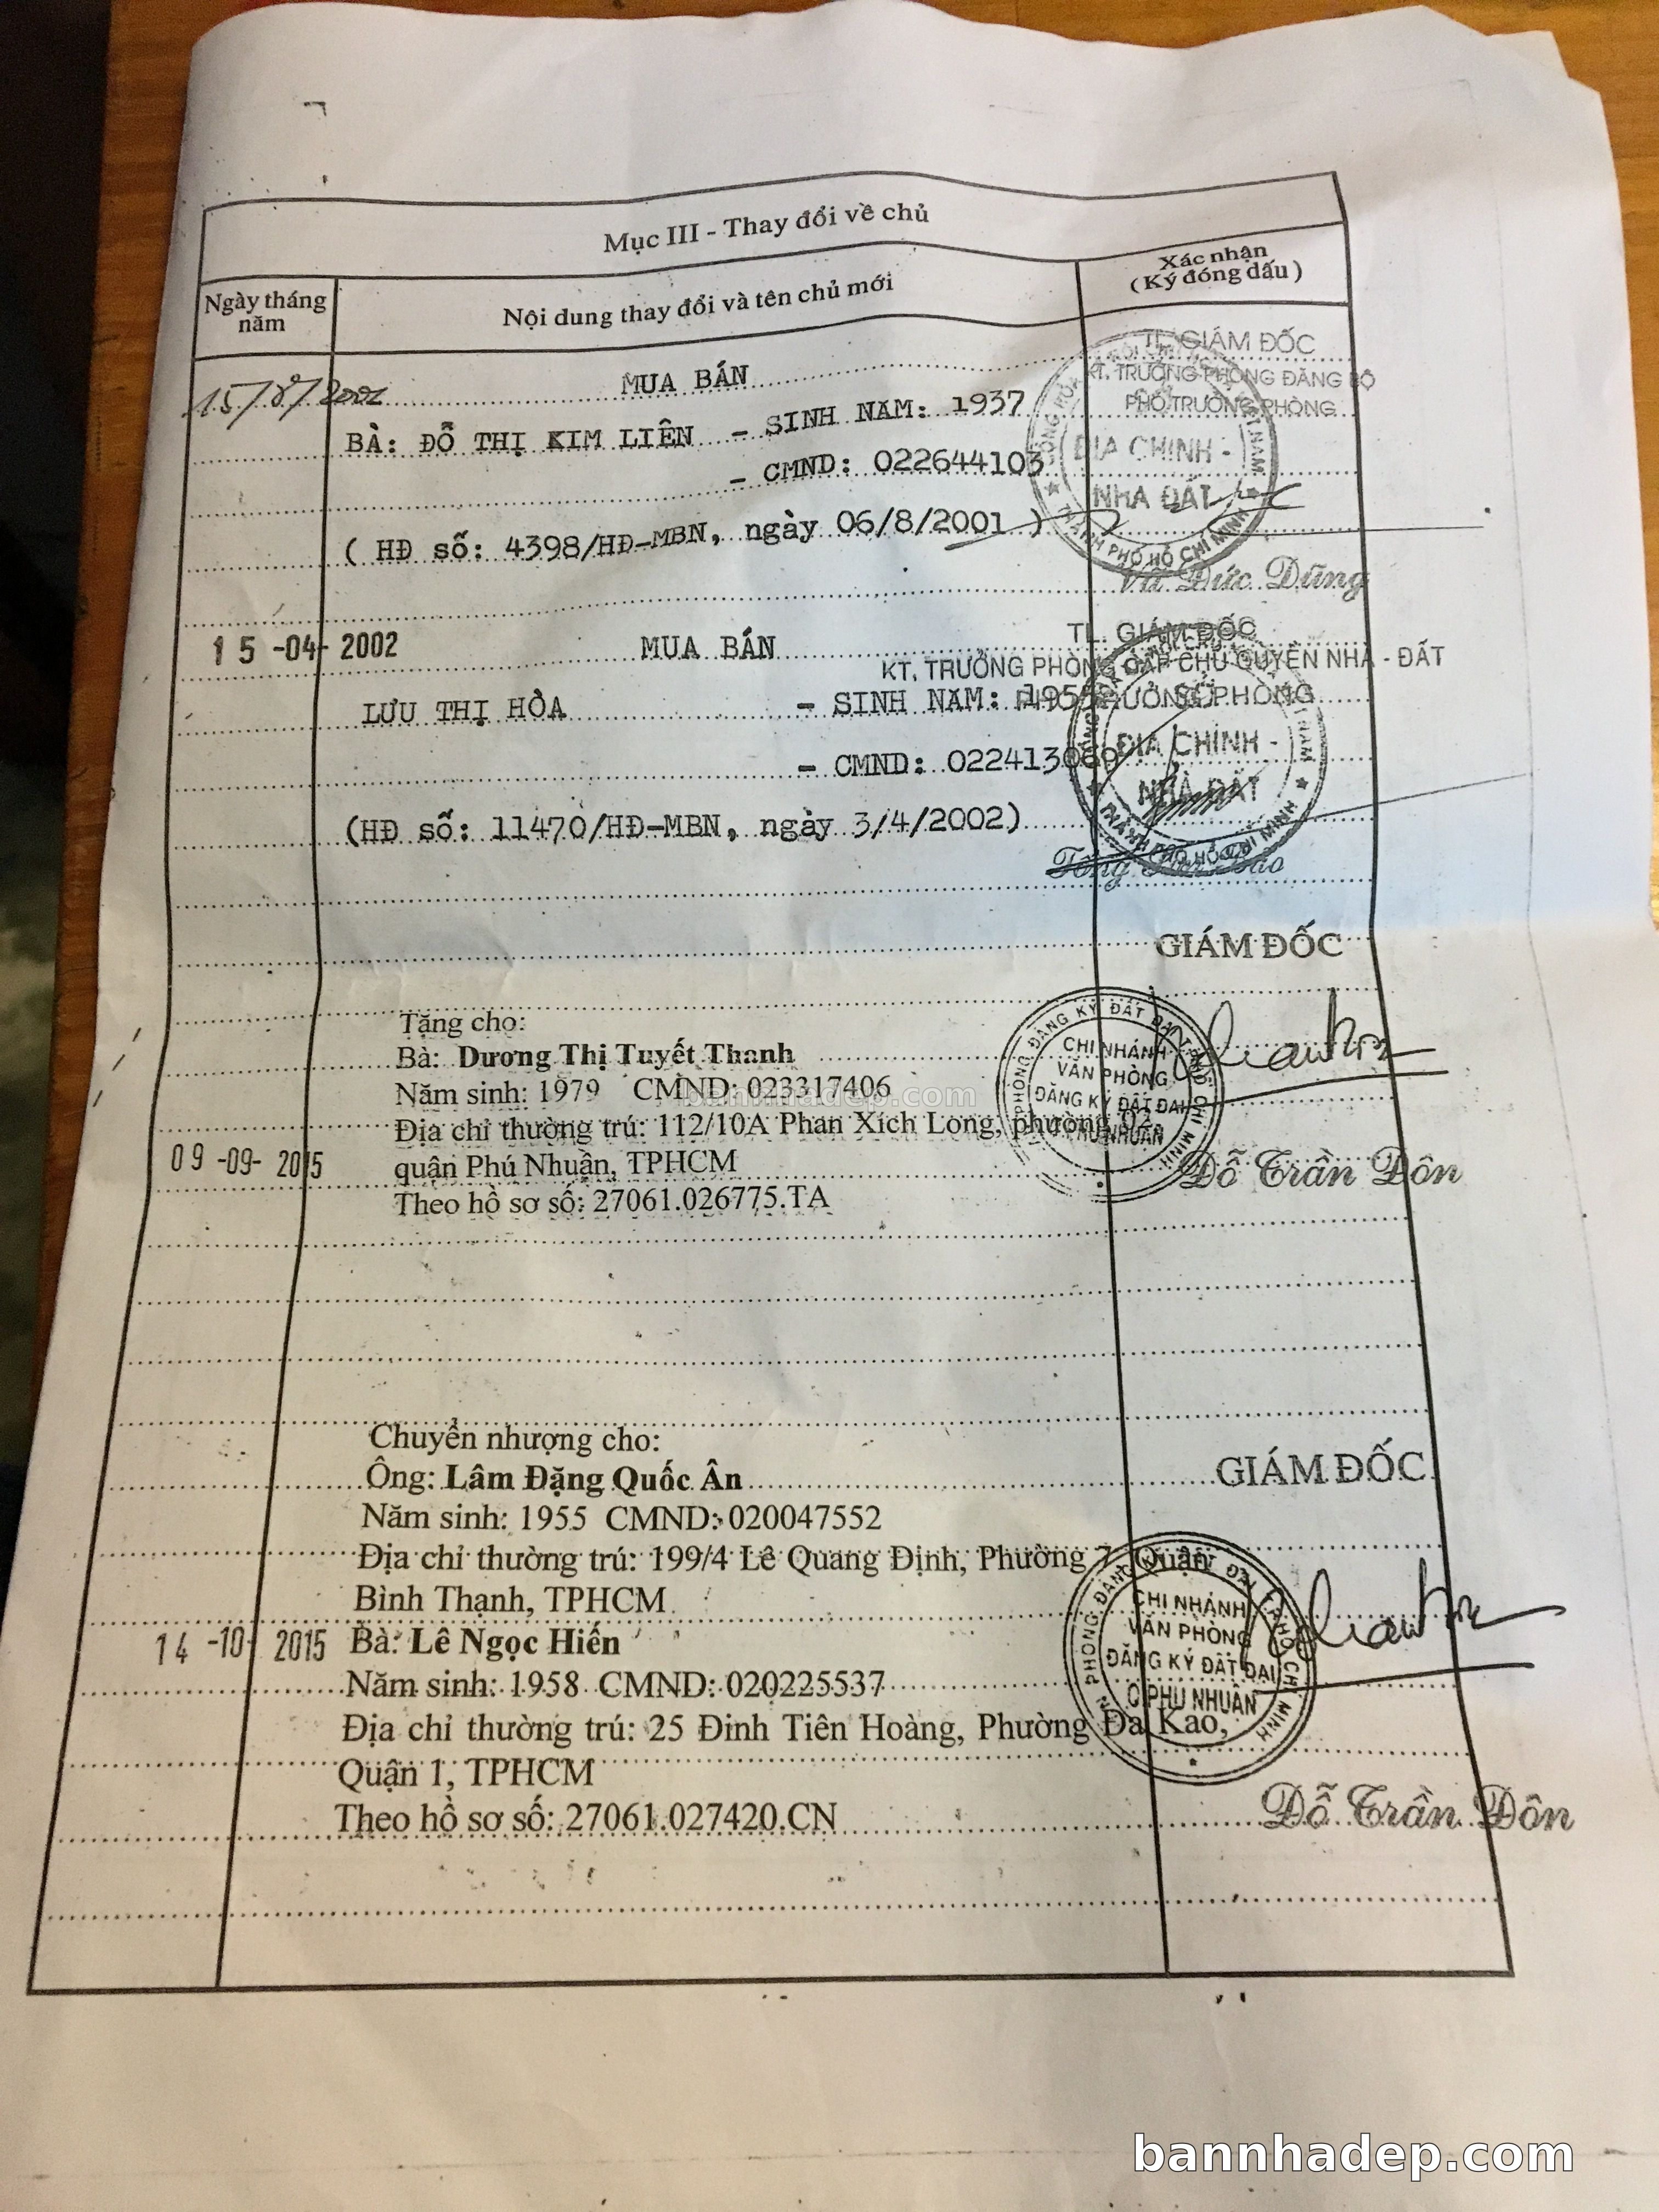 Mục III - Thay đổi về chủ
Ngày tháng năm
Nội dung thay đổi và tên chủ mới
Xác nhận
(Ký đóng dấu)
MUA BÁN
TL. GIÁM ĐỐC
KT. TRƯỞNG PHÒNG ĐĂNG BỘ
PHÓ TRƯỞNG PHÒNG
BÀ: ĐỖ THỊ KIM LIÊN - SINH NĂM: 1937
- CMND: 022644103
ĐỊA CHÍNH -
NHÀ ĐẤT
THÀNH PHỐ HỒ CHÍ MINH
( HĐ số: 4398/HĐ-MBN, ngày 06/8/2001 )
Vũ Đức Dũng
15 -04- 2002
MUA BÁN
TL. GIÁM ĐỐC
KT. TRƯỞNG PHÒNG CẤP CHỦ QUYỀN NHÀ - ĐẤT
LƯU THỊ HÒA - SINH NĂM:
SỞ
PHÒNG
- CMND:
ĐỊA CHÍNH -
NHÀ ĐẤT
(HĐ số: 11470/HĐ-MBN, ngày 3/4/2002)
GIÁM ĐỐC
Tặng cho:
Bà: Dương Thị Tuyết Thanh
Năm sinh: 1979 CMND: 023317406
Địa chỉ thường trú: 112/10A Phan Xích Long, phường 02,
09 -09- 2015
quận Phú Nhuận, TPHCM
Theo hồ sơ số: 27061.026775.TA
CHI NHÁNH
VĂN PHÒNG
ĐĂNG KÝ ĐẤT ĐAI
Đỗ Trần Đôn
bannhadep.com
Chuyển nhượng cho:
Ông: Lâm Đặng Quốc Ân
GIÁM ĐỐC
Năm sinh: 1955 CMND: 020047552
Địa chỉ thường trú: 199/4 Lê Quang Định, Phường 7, Quận
Bình Thạnh, TPHCM
14 -10- 2015
Bà: Lê Ngọc Hiến
Năm sinh: 1958 CMND: 020225537
Địa chỉ thường trú: 25 Đinh Tiên Hoàng, Phường Đa Kao,
Quận 1, TPHCM
Theo hồ sơ số: 27061.027420.CN
CHI NHÁNH
VĂN PHÒNG
ĐĂNG KÝ ĐẤT ĐAI
Q.PHÚ NHUẬN
Đỗ Trần Đôn
bannhadep.com